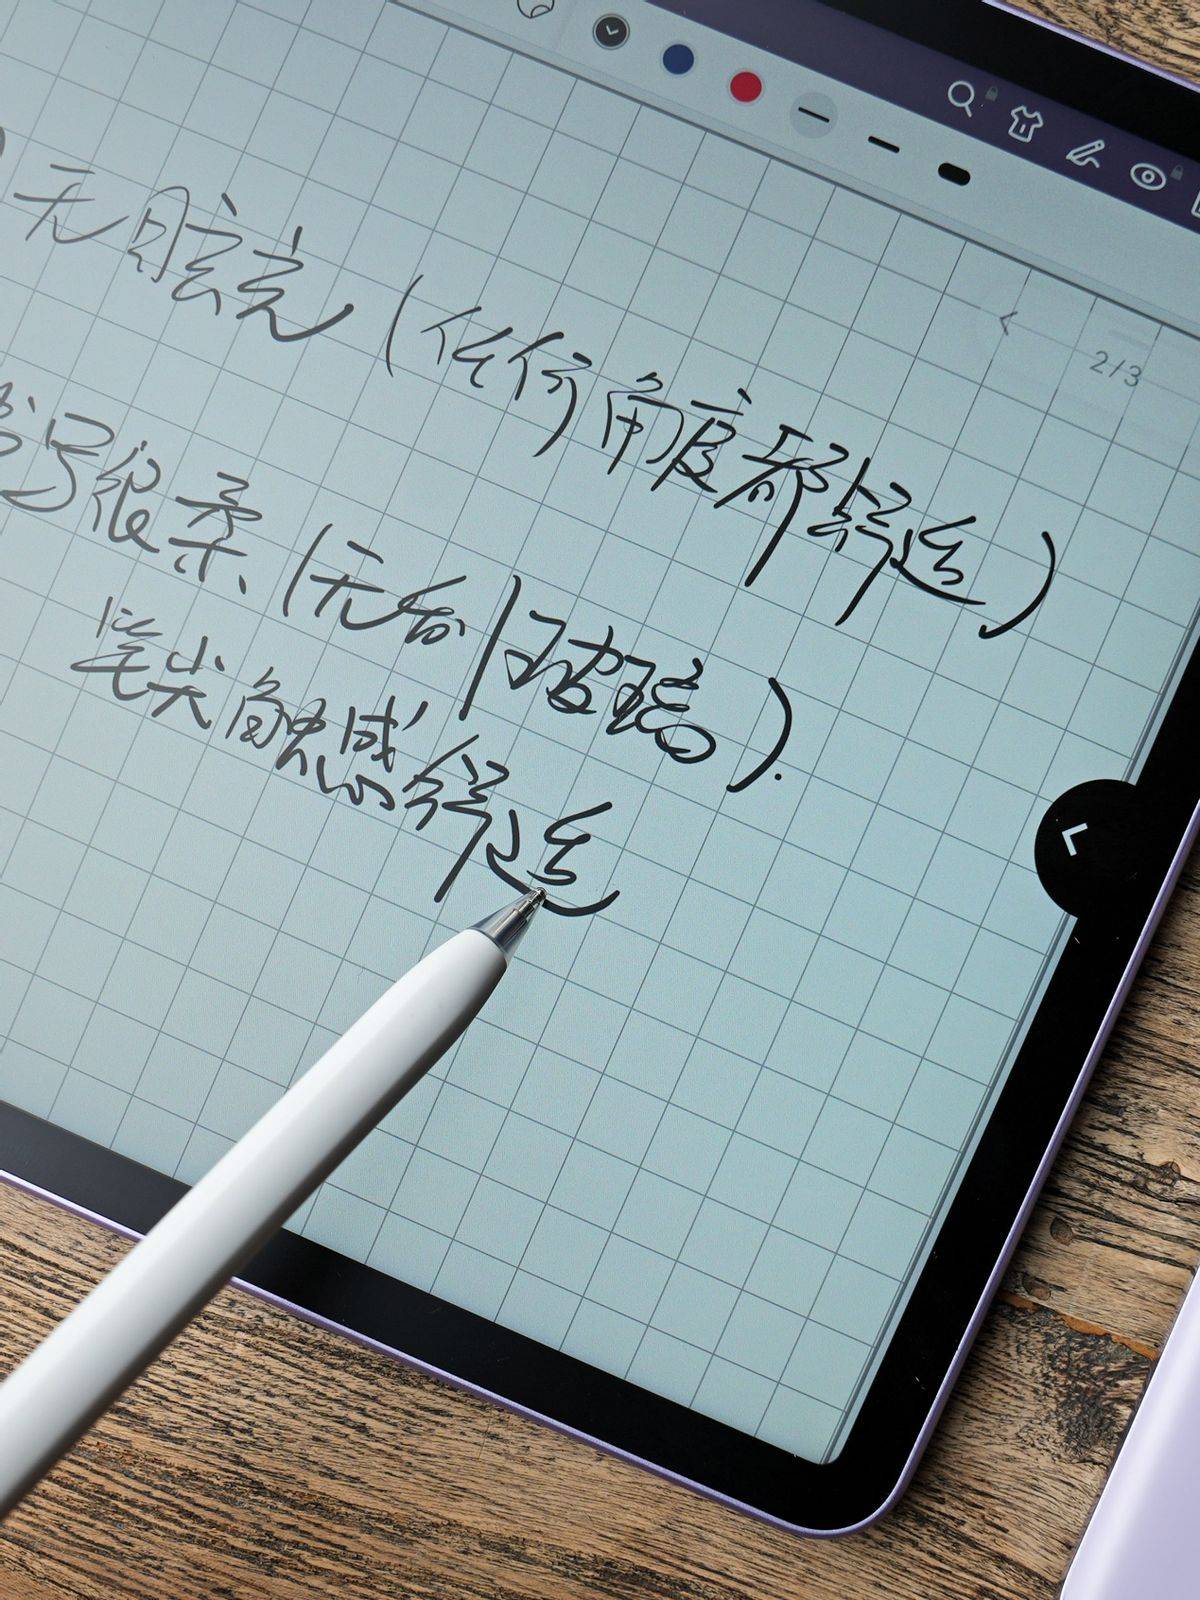 2/3
无眩光(任何角度都舒适)
书写很柔(无尘|玻璃).
笔尖触感舒适